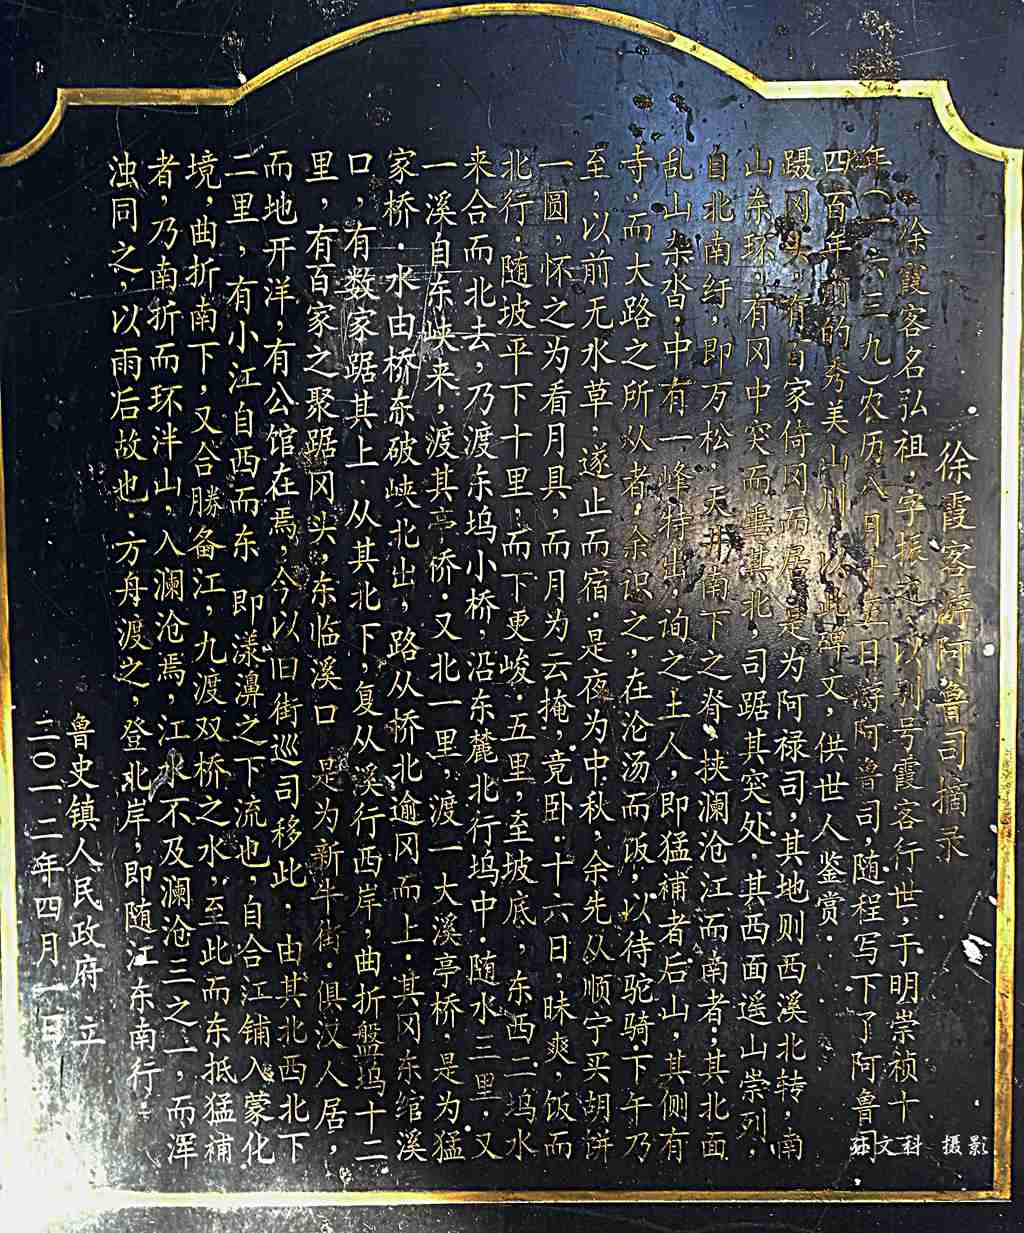 徐霞客游阿鲁司摘录
徐霞客名弘祖，字振之，以别号霞客行世，于明崇祯十
年（一六三九）农历八月十五日游阿鲁司，随程写下了阿鲁司
四百年前的秀美山川，以此碑文，供世人鉴赏．
蹑冈头，有百家倚冈而居，是为阿禄司，其地则西溪北转，南
山东环，有冈中突而垂其北，司踞其突处．其西面遥山崇列，
自北南纡，即万松．天井南下之脊，挟澜沧江而南者；其北面
乱山杂沓，中有一峰特出，询之土人，即猛補者后山，其侧有
寺，而大路之所从者，余识之，在沦汤而饭，以待驼骑下午乃
至，以前无水草，遂止而宿．是夜为中秋，余先从顺宁买胡饼
一圆，怀之为看月具，而月为云掩，竟卧．十六日，昧爽，饭而
北行．随坡平下十里，而下更峻．五里，至坡底，东西二坞水
来合而北去，乃渡东坞小桥，沿东麓北行坞中．随水三里，又
一溪自东峡来，渡其亭桥．又北一里，渡一大溪亭桥，是为猛
家桥．水由桥东破峡北出，路从桥北逾冈而上．其冈东绾溪
口，有数家踞其上．从其北下，复从溪行西岸，曲折盤坞十二
里，有百家之聚踞冈头，东临溪口，是为新牛街．俱汉人居，
而地开洋，有公馆在焉，今以旧街巡司移此，由其北西北下
二里，有小江自西而东，即漾濞之下流也，自合江铺入蒙化
境，曲折南下，又合勝备江，九渡双桥之水，至此而东抵猛補
者，乃南折而环泮山，入澜沧焉，江水不及澜沧三之一，而浑
浊同之，以雨后故也．方舟渡之，登北岸，即随江东南行．
鲁史镇人民政府 立
二〇一二年四月一日
孙文科 摄影